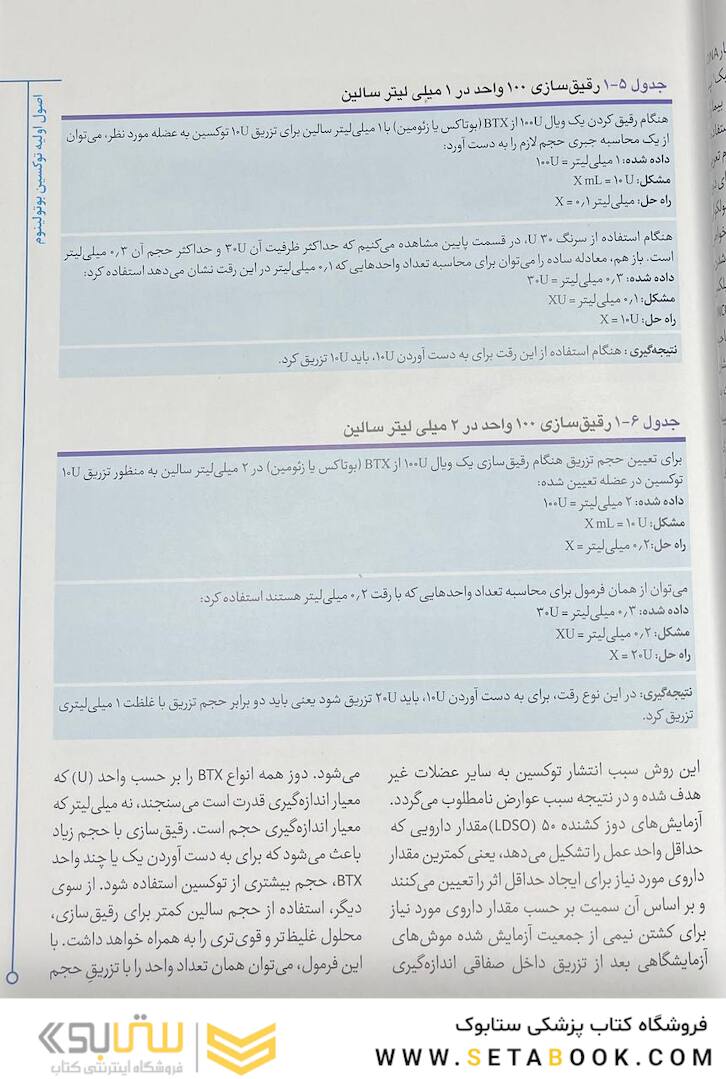 اصول اولیه توکسین بوتولینوم
جدول ۵-۱ رقیق‌سازی ۱۰۰ واحد در ۱ میلی لیتر سالین
هنگام رقیق کردن یک ویال ۱۰۰U از BTX (بوتاکس یا زئومین) با ۱ میلی‌لیتر سالین برای تزریق ۱۰U توکسین به عضله مورد نظر، می‌توان
از یک محاسبه جبری حجم لازم را به دست آورد:
داده شده: ۱ میلی‌لیتر = ۱۰۰U
مشکل: X mL = ۱۰U
راه حل: میلی‌لیتر ۰٫۱ = X
هنگام استفاده از سرنگ ۳۰ U، در قسمت پایین مشاهده می‌کنیم که حداکثر ظرفیت آن ۳۰U و حداکثر حجم آن ۰٫۳ میلی‌لیتر
است. باز هم، معادله ساده را می‌توان برای محاسبه تعداد واحدهایی که ۰٫۱ میلی‌لیتر در این رقت نشان می‌دهد استفاده کرد:
داده شده: ۰٫۳ میلی‌لیتر = ۳۰U
مشکل: ۰٫۱ میلی‌لیتر = XU
راه حل: X = ۱۰U
نتیجه‌گیری: هنگام استفاده از این رقت برای به دست آوردن ۱۰U، باید ۱۰U تزریق کرد.
جدول ۶-۱ رقیق‌سازی ۱۰۰ واحد در ۲ میلی لیتر سالین
برای تعیین حجم تزریق هنگام رقیق‌سازی یک ویال ۱۰۰U از BTX (بوتاکس یا زئومین) در ۲ میلی‌لیتر سالین به منظور تزریق ۱۰U
توکسین در عضله تعیین شده:
داده شده: ۲ میلی‌لیتر = ۱۰۰U
مشکل: X mL = ۱۰U
راه حل: ۰٫۲ میلی‌لیتر = X
می‌توان از همان فرمول برای محاسبه تعداد واحدهایی که با رقت ۰٫۲ میلی‌لیتر هستند استفاده کرد:
داده شده: ۰٫۳ میلی‌لیتر = ۳۰U
مشکل: ۰٫۲ میلی‌لیتر = XU
راه حل: X = ۲۰U
نتیجه‌گیری: در این نوع رقت، برای به دست آوردن ۱۰U، باید ۲۰U تزریق شود یعنی باید دو برابر حجم تزریق با غلظت ۱ میلی‌لیتری
تزریق کرد.
این روش سبب انتشار توکسین به سایر عضلات غیر
هدف شده و در نتیجه سبب عوارض نامطلوب می‌گردد.
آزمایش‌های دوز کشنده ۵۰ (LDSO) مقدار دارویی که
حداقل واحد عمل را تشکیل می‌دهد، یعنی کمترین مقدار
داروی مورد نیاز برای ایجاد حداقل اثر را تعیین می‌کنند
و بر اساس آن سمیت بر حسب مقدار داروی مورد نیاز
برای کشتن نیمی از جمعیت آزمایش شده موش‌های
آزمایشگاهی بعد از تزریق داخل صفاقی اندازه‌گیری
می‌شود. دوز همه انواع BTX را بر حسب واحد (U) که
معیار اندازه‌گیری قدرت است می‌سنجند، نه میلی‌لیتر که
معیار اندازه‌گیری حجم است. رقیق‌سازی با حجم زیاد
باعث می‌شود که برای به دست آوردن یک یا چند واحد
BTX، حجم بیشتری از توکسین استفاده شود. از سوی
دیگر، استفاده از حجم سالین کمتر برای رقیق‌سازی،
محلول غلیظ‌تر و قوی‌تری را به همراه خواهد داشت. با
این فرمول، می‌توان همان تعداد واحد را با تزریق حجم
فروشگاه کتاب پزشکی ستابوک
WWW.SETABOOK.COM
ستابوک
فروشگاه اینترنتی کتاب